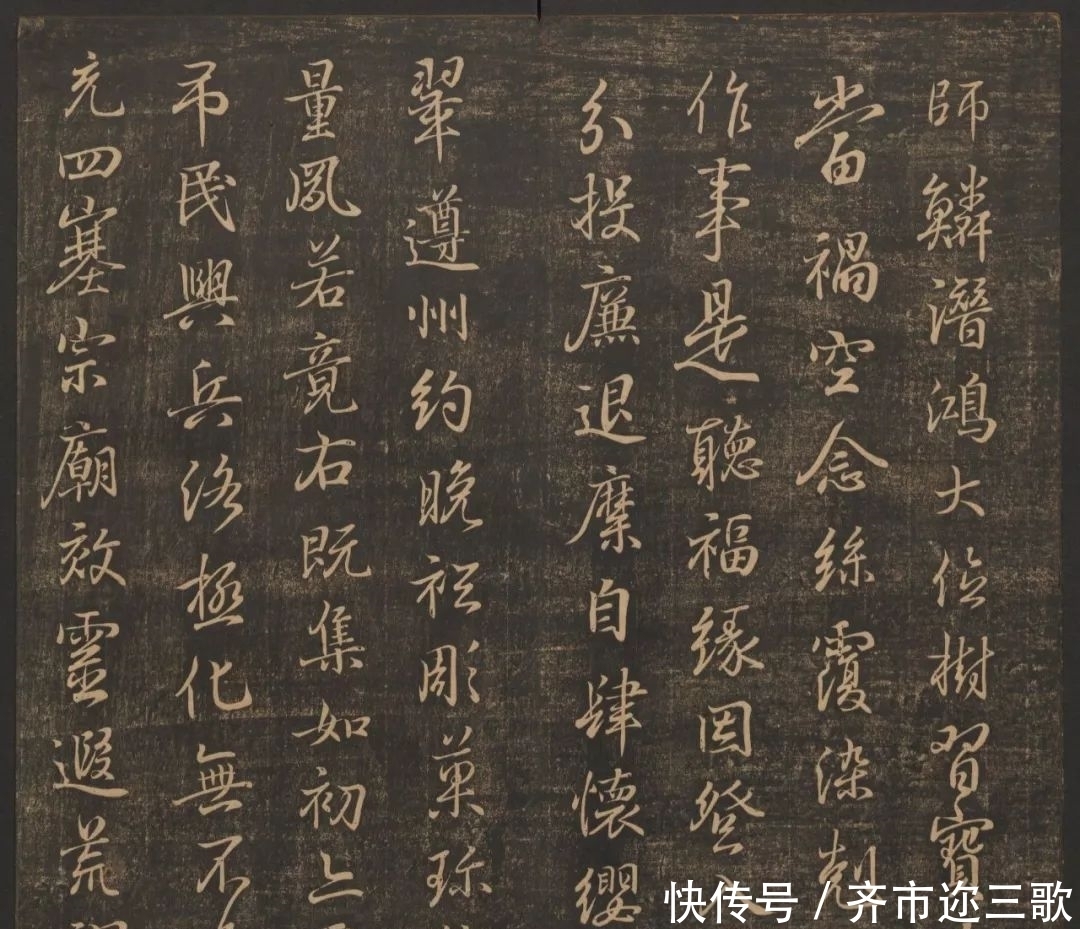 師鱗潛鴻大位樹習寶
當禍空念絲覆染剋
作事是聽福緣因登
分投廉退縻自肆懷纓
翠遵州約晚祗彫菓珎
量風若竟右既集如初上
吊民興兵洛極化無不
充四塞宗廟效靈遐荒
快传号 / 齐市迩三歌